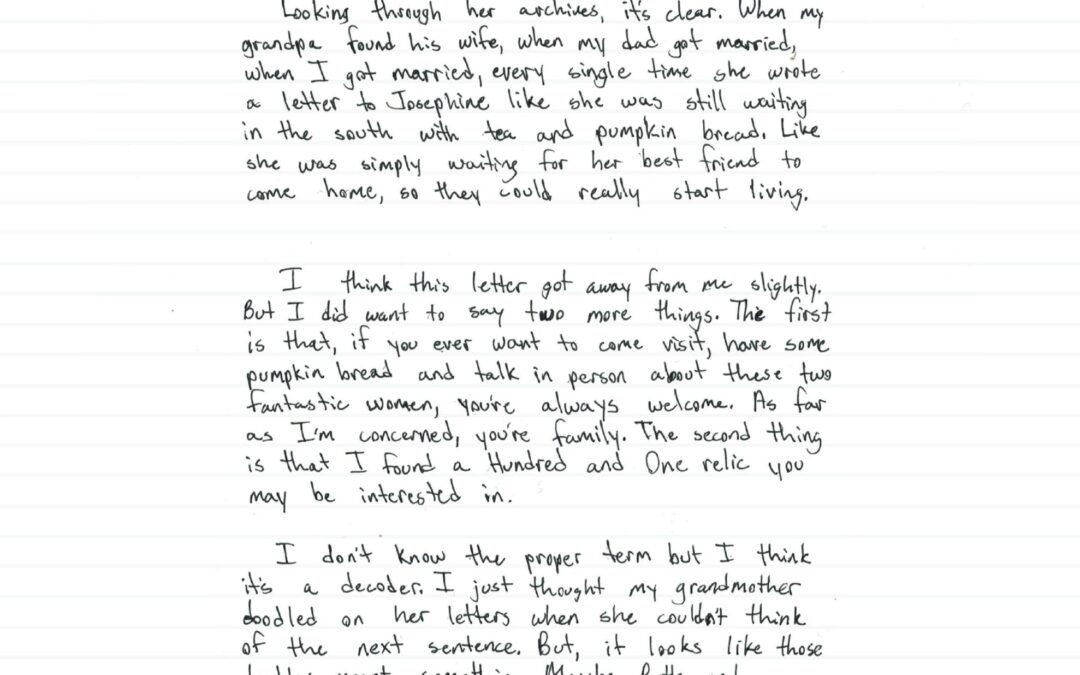 Looking through her archives, it's clear. When my
grandpa found his wife, when my dad got married,
when I got married, every single time she wrote
a letter to Josephine like she was still waiting
in the south with tea and pumpkin bread. Like
she was simply waiting for her best friend to
come home, so they could really start living.
I think this letter got away from me slightly.
But I did want to say two more things. The first
is that, if you ever want to come visit, have some
pumpkin bread and talk in person about these two
fantastic women, you're always welcome. As far
as I'm concerned, you're family. The second thing
is that I found a Hundred and One relic you
may be interested in.
I don't know the proper term but I think
it's a decoder. I just thought my grandmother
doodled on her letters when she couldn't think
of the next sentence. But, it looks like those